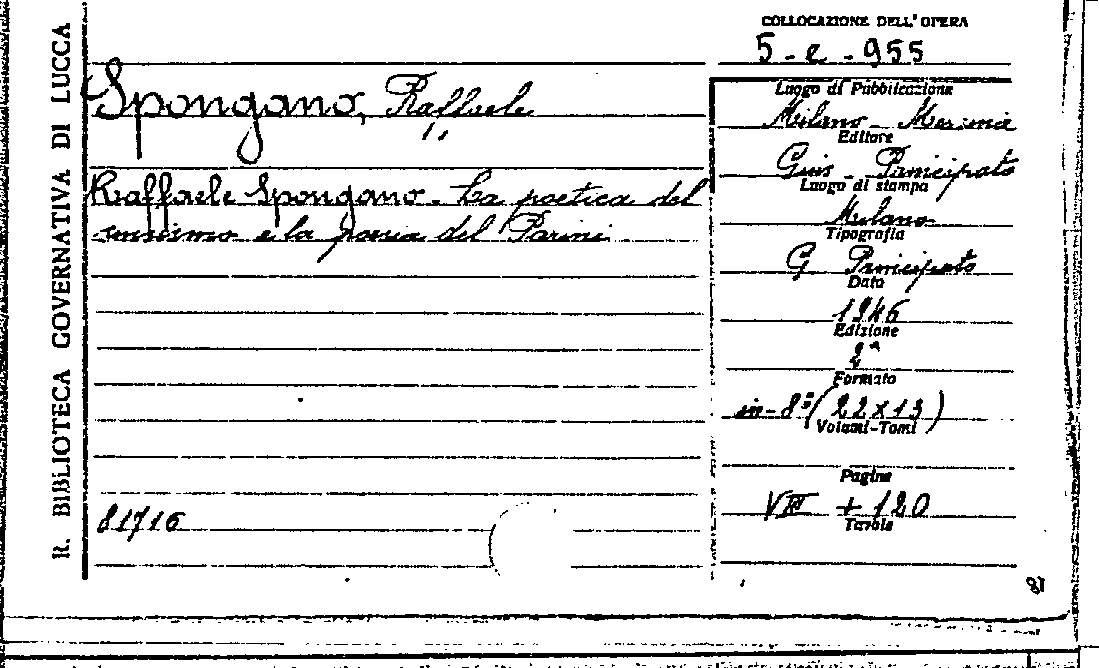 R. BIBLIOTECA GOVERNATIVA DI LUCCA
COLLOCAZIONE DELL'OPERA
5-e-955
Spongano, Raffaele
Raffaele Spongano - La poetica del
sensismo e la poesia del Parini
81716
Luogo di Pubblicazione
Milano - Messina
Editore
Gius. Principato
Luogo di stampa
Milano
Tipografia
G Principato
Data
1946
Edizione
2ª
Formato
in-8° (22x13)
Volumi-Tomi
Pagine
VIII + 120
Tavole